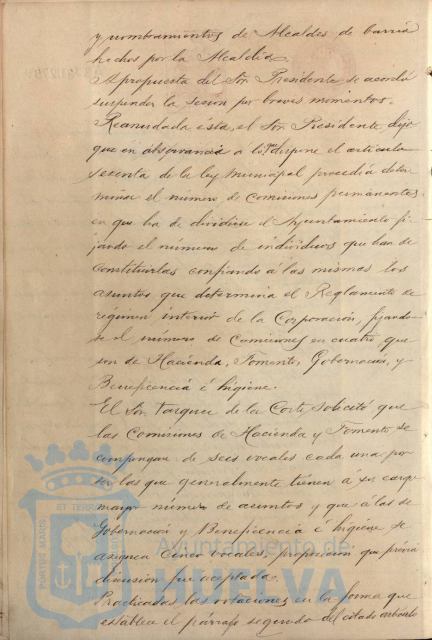 y nombramientos de Alcaldes de barrio
hechos por la Alcaldia.
A propuesta del Sor. Presidente se acordó
suspender la sesion por breves momentos.
Reanudada esta, el Sor. Presidente dijo
que en observancia á lo que dispone el articulo
sesenta de la ley Municipal procedia deter
minar el numero de comisiones permanentes
en que ha de dividirse el Ayuntamiento fi
jando el número de individuos que han de
constituirlas confiando á las mismas los
asuntos que determina el Reglamento de
régimen interior de la Corporación, fijando
se el número de Comisiones en cuatro que
son de Hacienda, Fomento, Gobernación, y
Beneficencia é higiene.
El Sor. Vazquez de la Corte solicitó que
las Comisiones de Hacienda y Fomento se
compongan de seis vocales cada una por
ser las que generalmente tienen á su cargo
mayor número de asuntos y que á las de
Gobernacion y Beneficencia é higiene se
asignen cinco vocales, proposicion que prévia
discusion fue aceptada.
Practicadas las votaciones en la forma que
establece el parrafo segundo del citado articulo
PORTUS MARIS
ET TERRAE
Ayuntamiento de
HUELVA